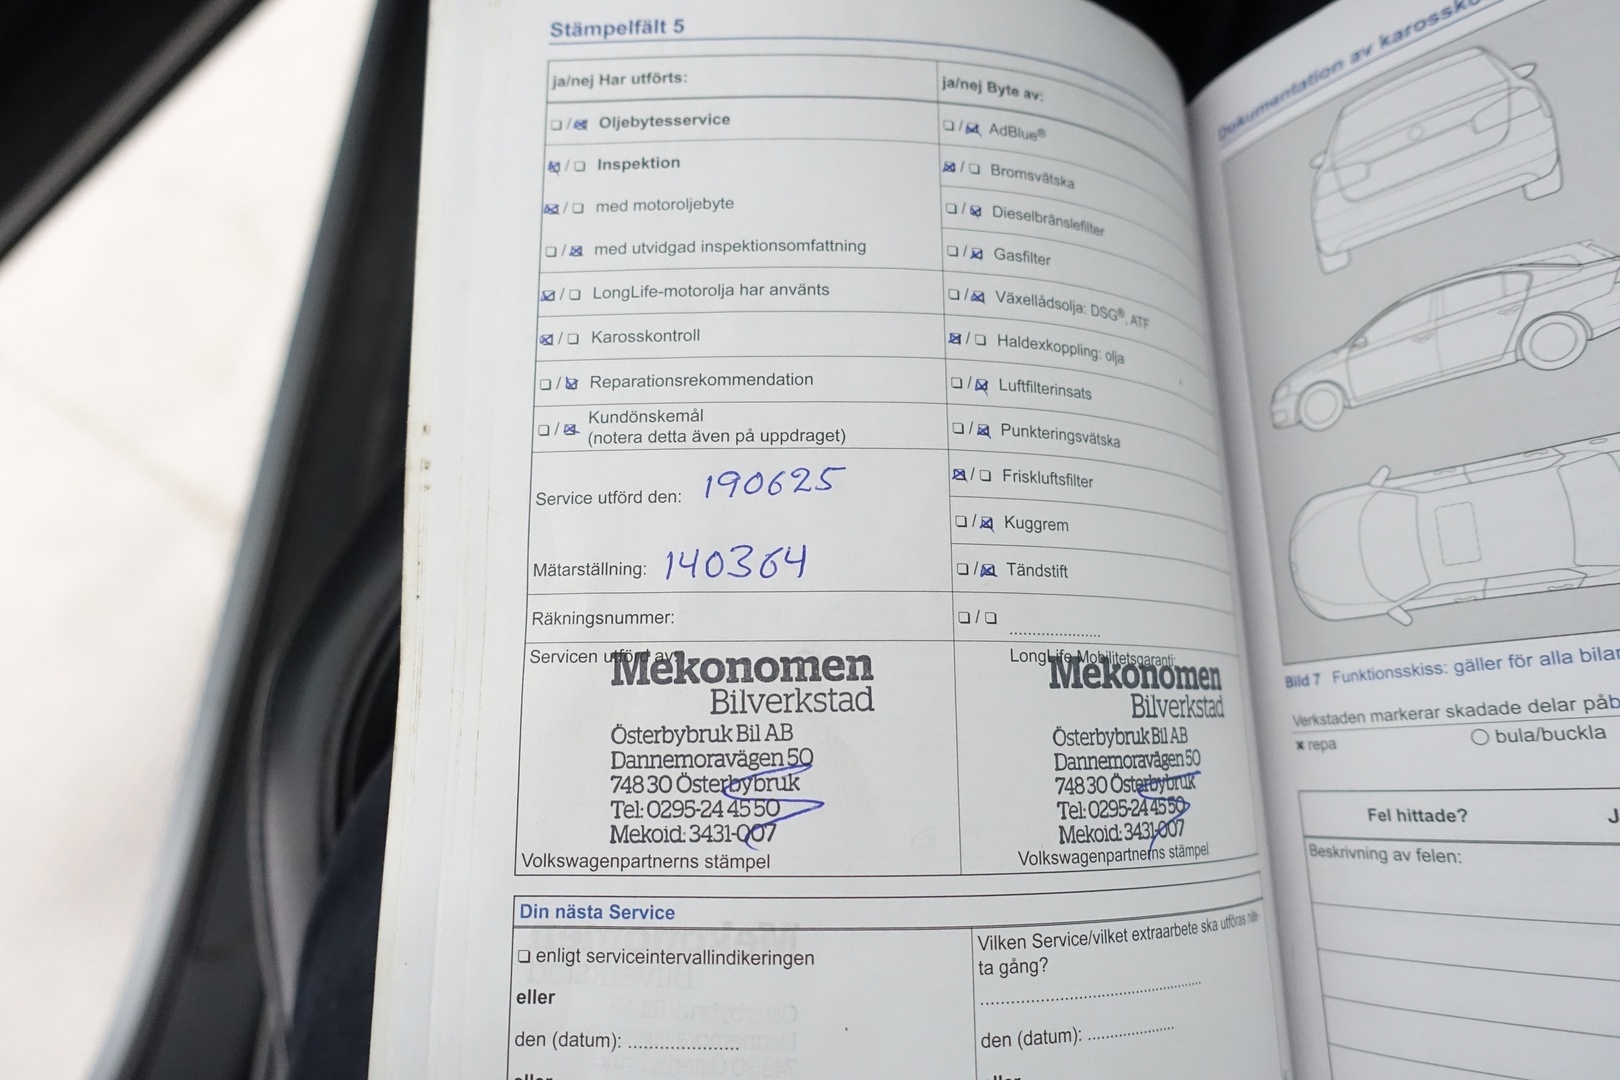 Stämpelfält 5
ja/nej Har utförts:
☐/☒ Oljebytesservice
☒/☐ Inspektion
☒/☐ med motoroljebyte
☐/☒ med utvidgad inspektionsomfattning
☒/☐ LongLife-motorolja har använts
☒/☐ Karosskontroll
☐/☒ Reparationsrekommendation
☐/☒ Kundönskemål
(notera detta även på uppdraget)
Service utförd den: 190625
Mätarställning: 140364
Räkningsnummer:
Servicen utförd av:
Mekonomen
Bilverkstad
Österbybruk Bil AB
Dannemoravägen 50
748 30 Österbybruk
Tel: 0295-24 45 50
Mekoid: 3431-007
Volkswagenpartnerns stämpel
ja/nej Byte av:
☐/☒ AdBlue®
☒/☐ Bromsvätska
☐/☒ Dieselbränslefilter
☐/☒ Gasfilter
☐/☒ Växellådsolja: DSG®, ATF
☒/☐ Haldexkoppling: olja
☐/☒ Luftfilterinsats
☐/☒ Punkteringsvätska
☒/☐ Friskluftsfilter
☐/☒ Kuggrem
☐/☒ Tändstift
☐/☐ ....................
LongLife Mobilitetsgaranti:
Mekonomen
Bilverkstad
Österbybruk Bil AB
Dannemoravägen 50
748 30 Österbybruk
Tel: 0295-24 45 50
Mekoid: 3431-007
Volkswagenpartnerns stämpel
Din nästa Service
☐ enligt serviceintervallindikeringen
eller
den (datum): ....................
eller
Vilken Service/vilket extraarbete ska utföras näs-
ta gång?
........................................
den (datum): ...............
eller
Dokumentation av
Bild 7 Funktionsskiss: gäller för alla bilar
Verkstaden markerar skadade delar
x repa
○ bula/buckla
Fel hittade?
Beskrivning av felen: